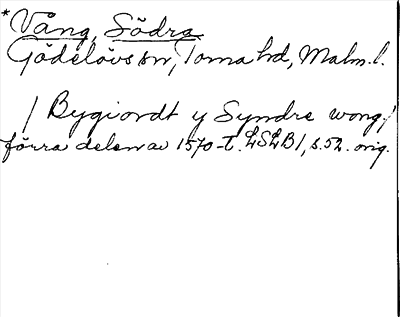 *Vång, Södra
Gödelövs sn, Torna hd, Malm. l.
/ Bygiordt y Syndre wong /
förra delen av 1570-t. LSLB 1, s. 52. orig.